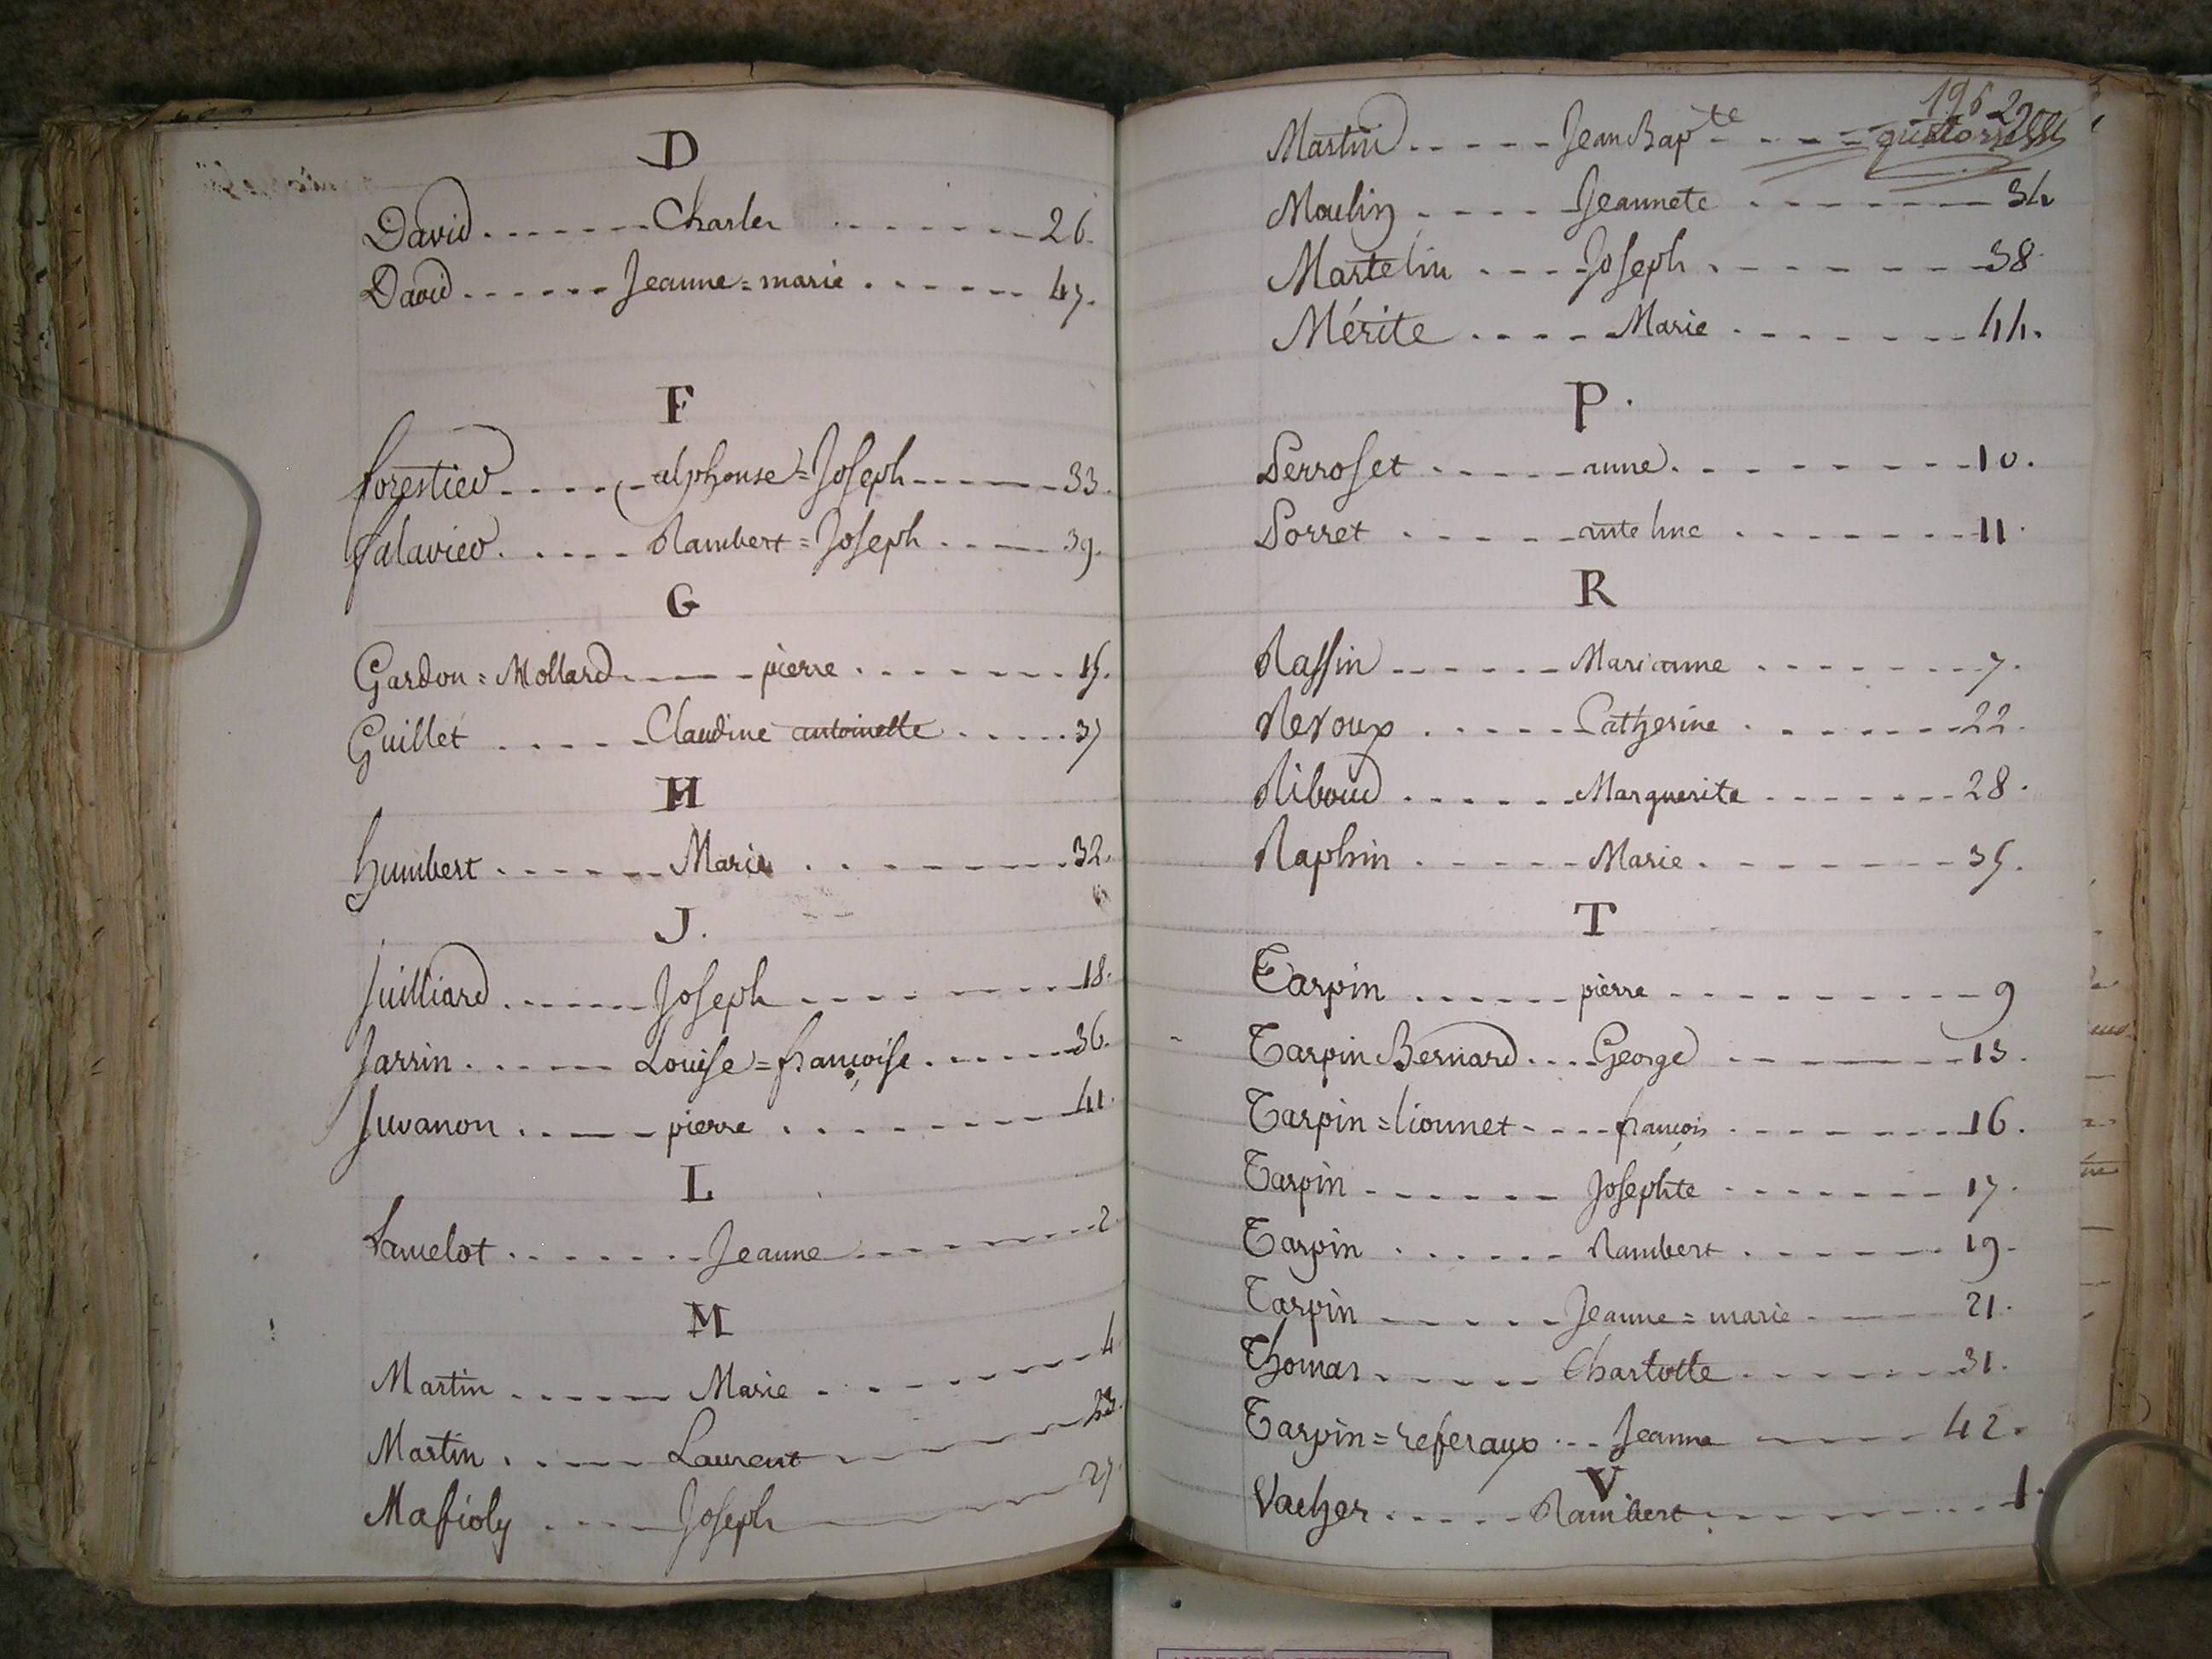 D
David ------- Charles ------- 26.
David ------ Jeanne=marie ------ 47.
F
forestier ----- alphonse=Joseph ------ 33.
falavier ---- Rambert=Joseph ---- 39.
G
Gardon=Mollard ---- pierre ------ 15.
Guillet ---- Claudine antoinette ---- 37
H
humbert ------ Marie ------ 32.
J.
Juilliard ------ Joseph ------ 18.
Jarrin ------ Louise=françoise ------ 36.
Juvanon ---- pierre ------ 41.
L
Lancelot ------ Jeanne ------ 2
M
Martin ------ Marie ------ 4
Martin ---- Laurent ---- 23.
Mafioly ---- Joseph ---- 27
196
Martin ----- Jean Bapte -----
Moulin ---- Jeannete ------ 34
Martelin ---- Joseph ------ 38
Mérite ---- Marie ------ 44.
P.
Perroset ----- anne ------ 10.
Porret ----- anteline ------ 11.
R
Raffin ------ Marianne ------ 7.
Reroux ----- Catherine ------ 22.
Riboud ------ Marguerite ------ 28.
Raphin ----- Marie ------ 35.
T
Tarpin ------ pierre ------ 9
Tarpin Bernard --- George ------ 13.
Tarpin=lionnet ---- françois ------ 16.
Tarpin ------ Josephte ------ 17.
Tarpin ------ Rambert ------ 19.
Tarpin ----- Jeanne=marie ---- 21.
Thomas ----- Charlotte ------ 31.
Tarpin=referaux --- Jeanne ---- 42.
V
Vacher ----- Rambert ------ 1.